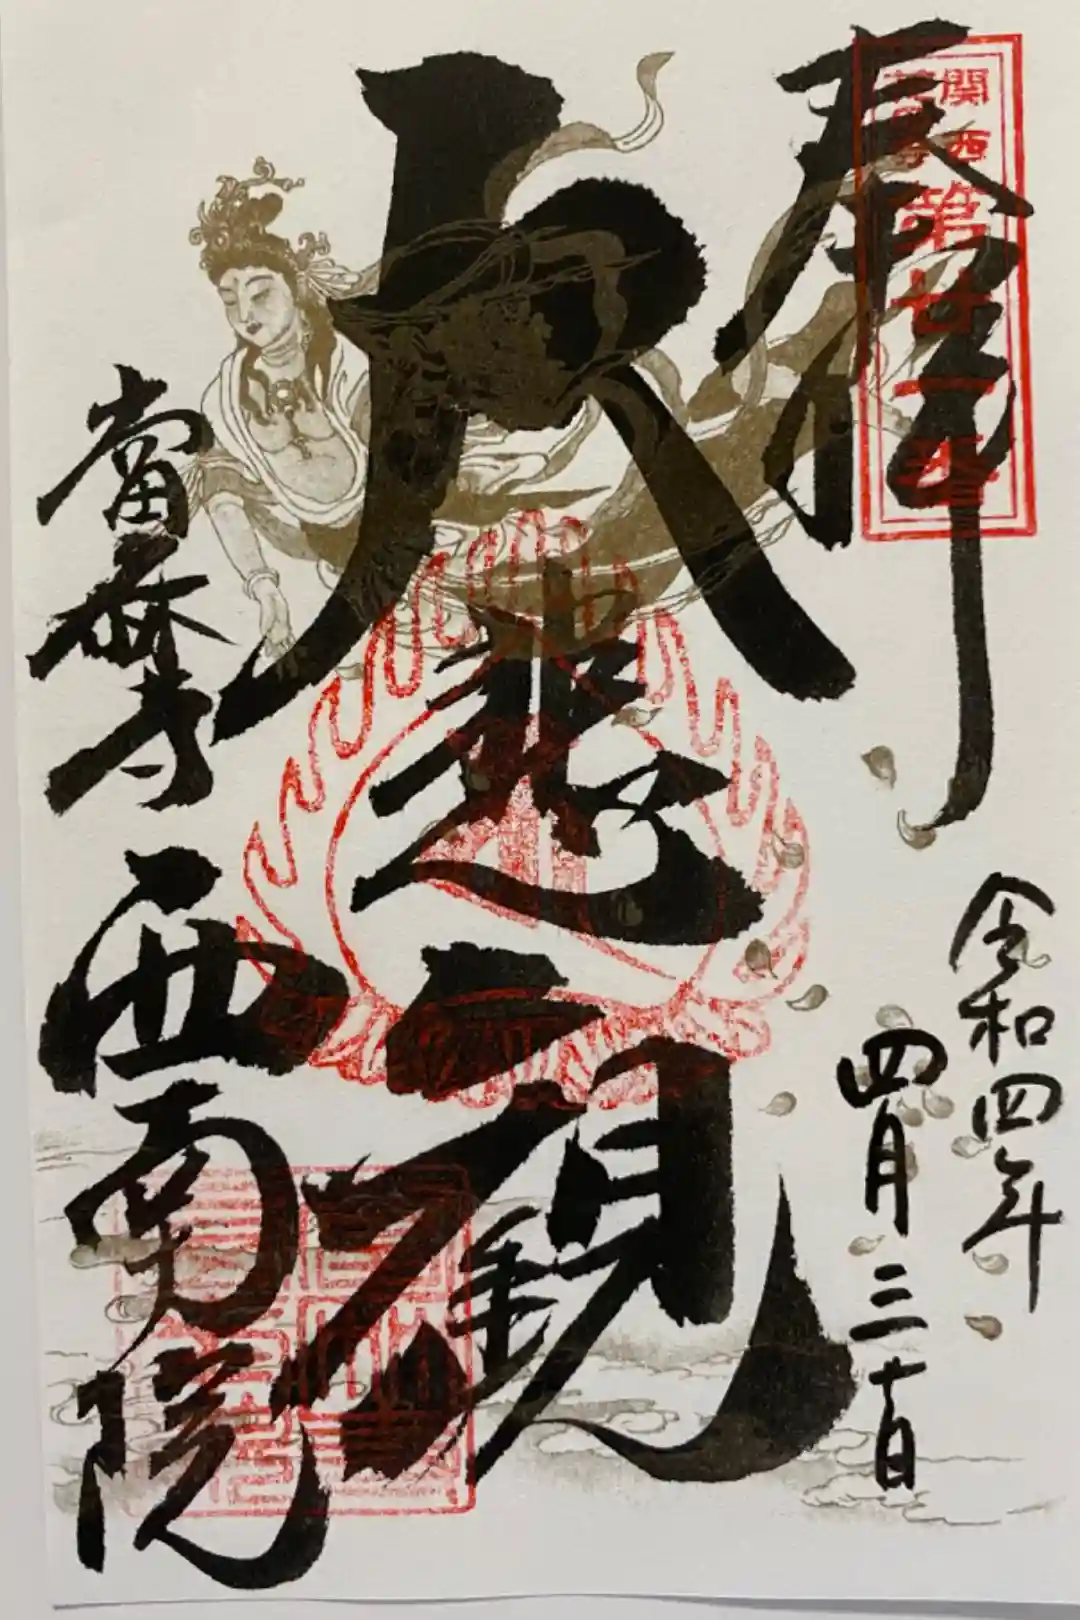 奉拝
関西
花の寺
第廿一番
令和四年
四月三十日
大悲観
當麻寺
西南院